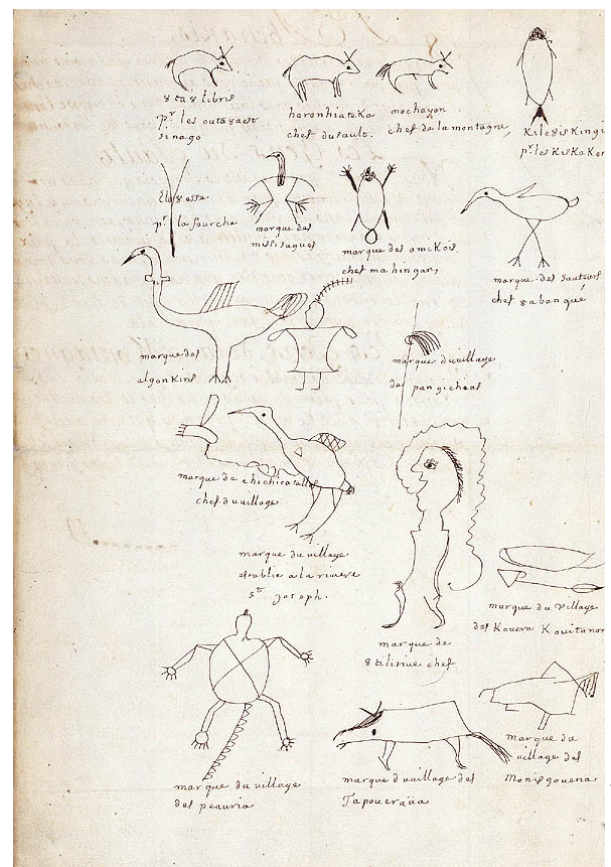 8ta8libris
pr les outa8aest
sinago
haronhiateka
chef du sault.
mechayon
chef de la montagne,
Kile8isKingi
pr les KisKaKon
Ela8esse
pr la fourche
marque des
missisagues
marque des amikois
chef mahingan,
marque des sauteurs
chef 8abangué
marque des
algonkins
marque du village
des pangicheas
marque de chichicatalla
chef du village
marque du village
establie a la riviere
St joseph.
marque de
8tilirine chef
marque du village
des Kouera Kouitanon
marque du village
des peauria
marque d uvillage des
Tapoueraüa
marque du
village des
Monisgouena